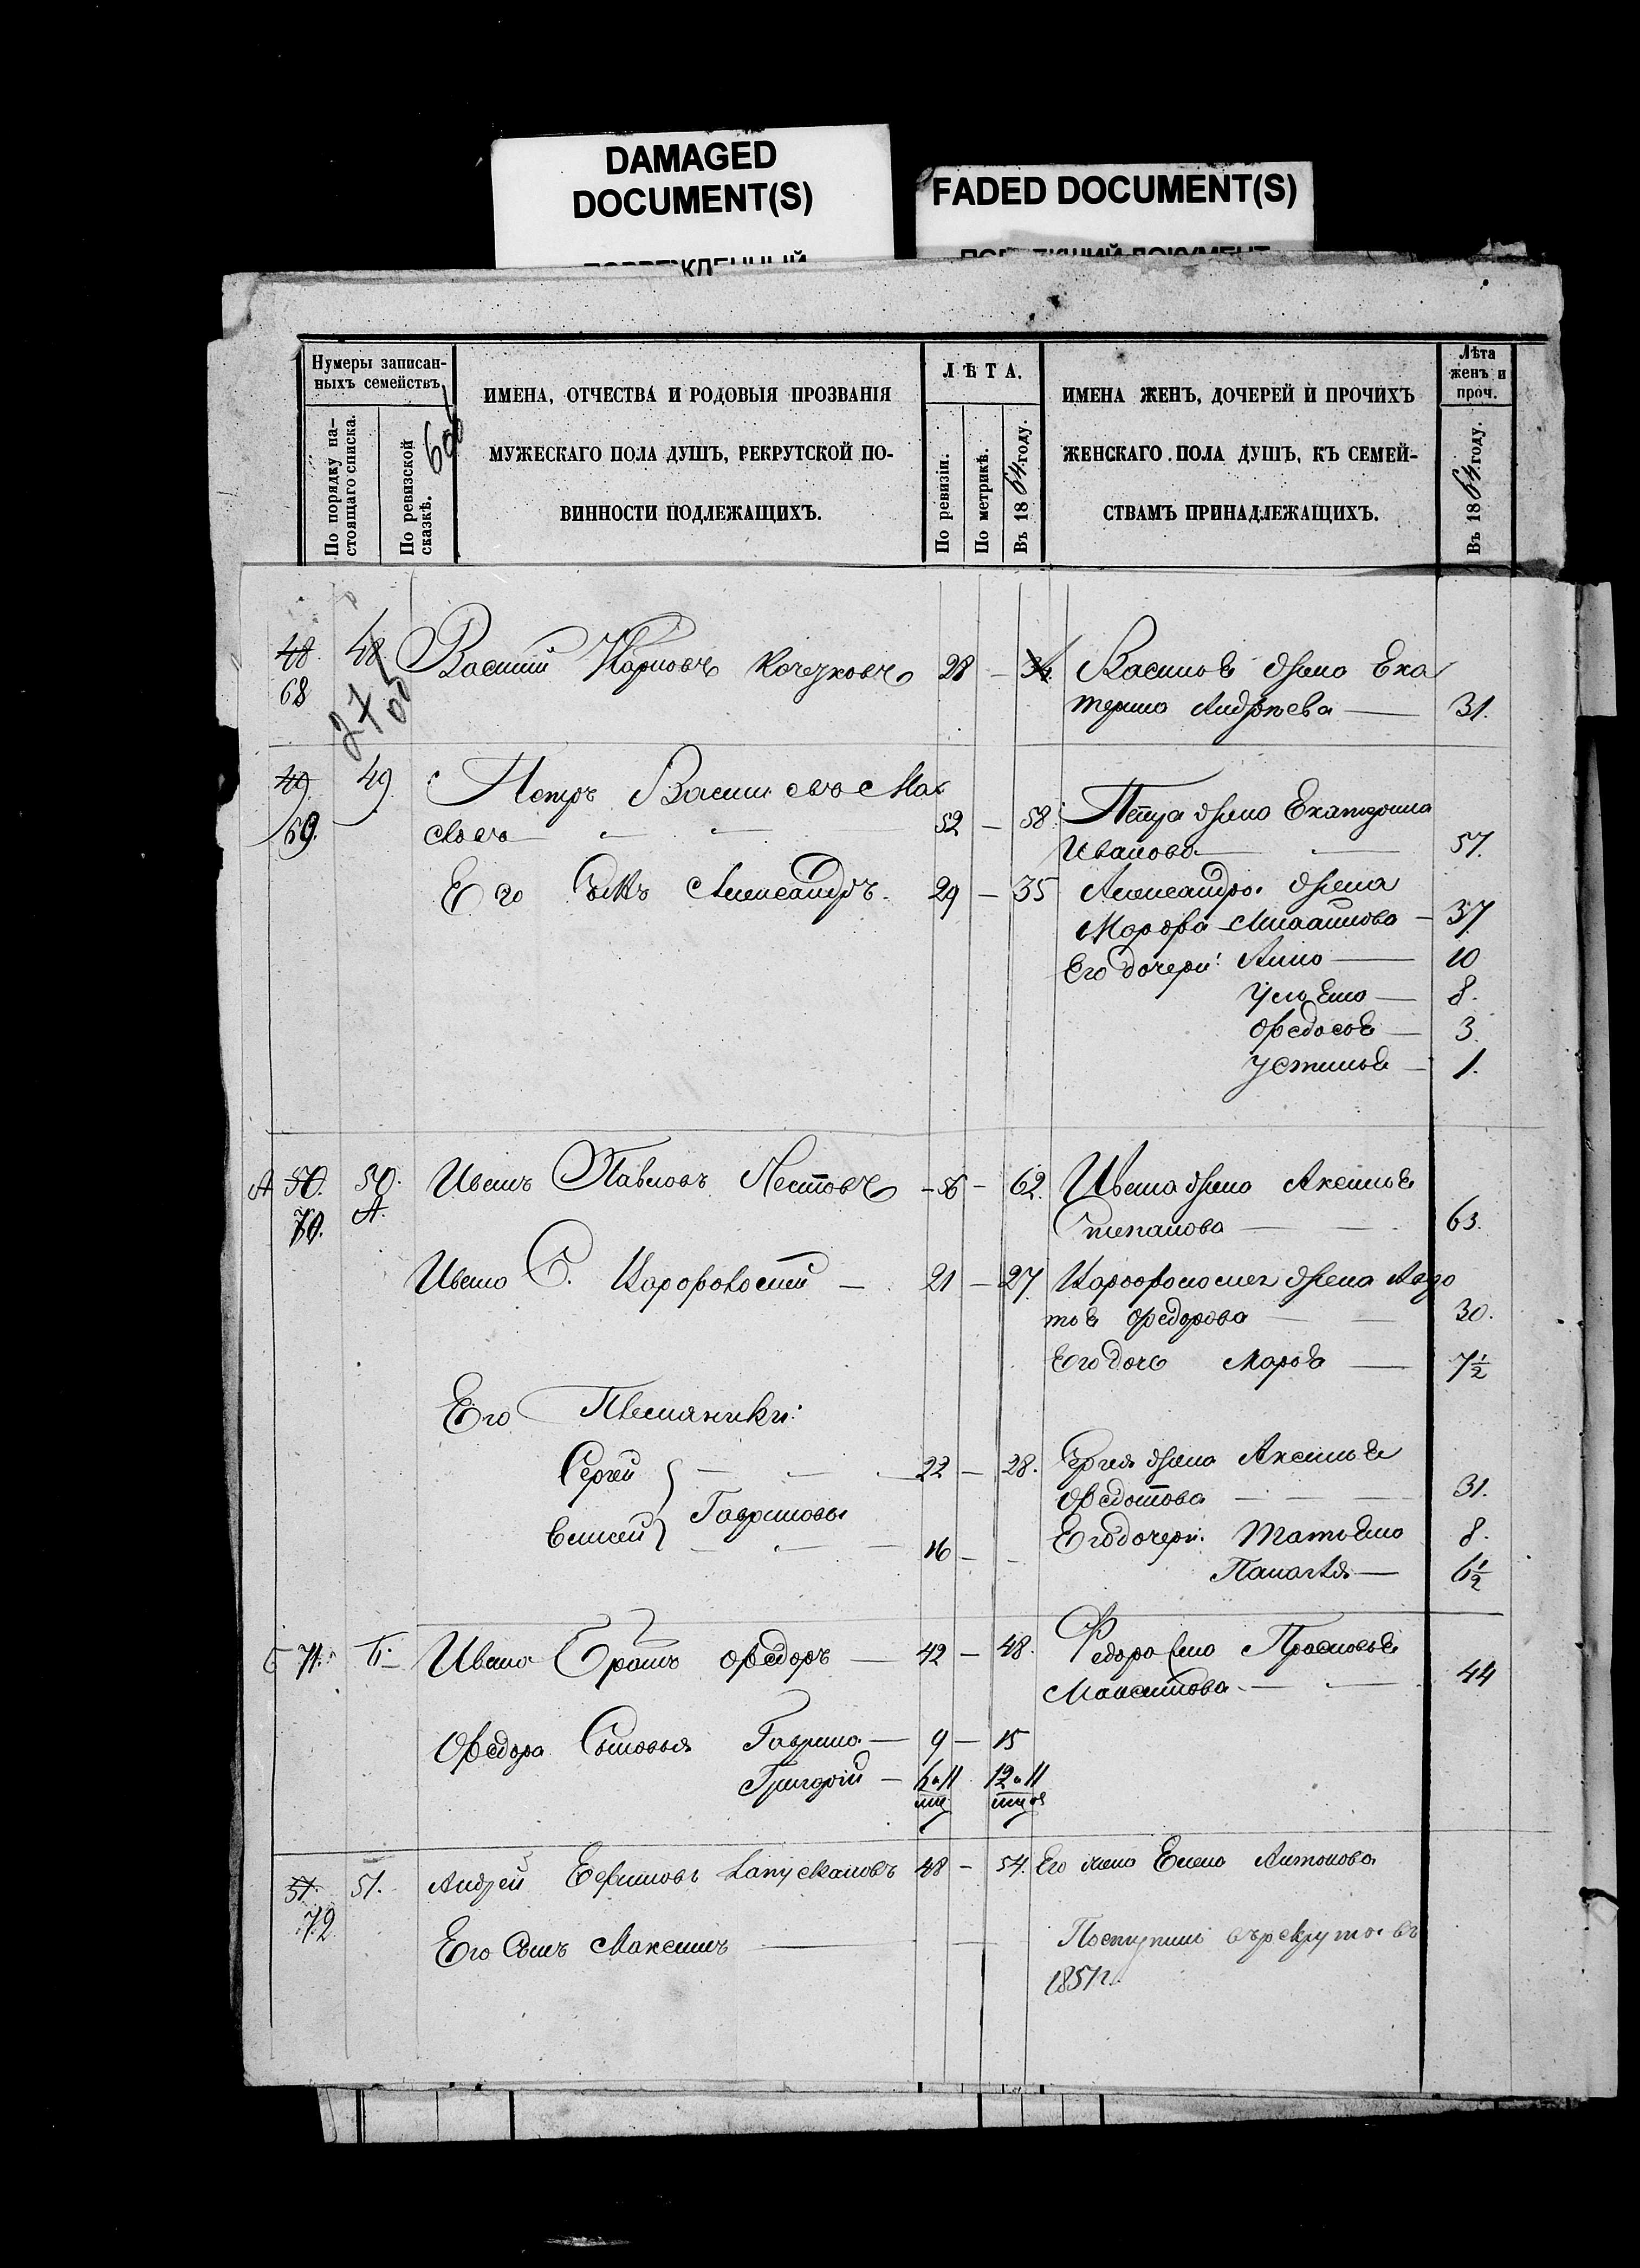 DAMAGED
DOCUMENT(S)
FADED DOCUMENT(S)
Нумеры записан-
ныхъ семействъ
По порядку на-
стоящаго списка.
По ревизской
сказкѣ.
ИМЕНА, ОТЧЕСТВА И РОДОВЫЯ ПРОЗВАНІЯ
МУЖЕСКАГО ПОЛА ДУШЪ, РЕКРУТСКОЙ ПО-
ВИННОСТИ ПОДЛЕЖАЩИХЪ.
ЛѢТА.
По ревизіи.
По метрикѣ.
Въ 1864 году.
ИМЕНА ЖЕНЪ, ДОЧЕРЕЙ И ПРОЧИХЪ
ЖЕНСКАГО ПОЛА ДУШЪ, КЪ СЕМЕЙ-
СТВАМЪ ПРИНАДЛЕЖАЩИХЪ.
Лѣта
женъ и
проч.
Въ 1864 году.
48. 48 Василій Карповъ 28 — 34. Василья жена Ека
68 терина Андреева — 31.
49 49 Петръ Васильевъ
69. 52 — 58. Петра жена Екатерина
Иванова — 57.
Его Сынъ Александръ. 29 — 35 Александра жена
Марфа — 37
Его дочери: Анна — 10
Ульяна — 8.
Федосья — 3
Устинья — 1.
А 50. 50. Иванъ Павловъ — 56 — 62. Ивана жена Аксинья
70. А. Степанова — 63.
Ивана С. — 21 — 27 жена Авдо
тья Федорова — 30.
Его дочь Марья — 7½
Его Племяники:
Сергей — 22 — 28. Сергея жена Аксинья
Федотова — 31.
Гавриловы
Елисей — 16 — Его дочери: Татьяна 8.
Пелагѣя — 6½
Б 71. Б. Ивана Братъ Федоръ — 42 — 48. Федора жена Прасковья
Максимова — 44
Федора Сыновья Гаврила — 9 — 15
Григорій — 6 и 11 12 и 11
51. 51. Андрей Ефимовъ 48 — 54. Его жена Елена Антонова
72
Его Сынъ Максимъ — Поступилъ въ рекруты въ
185